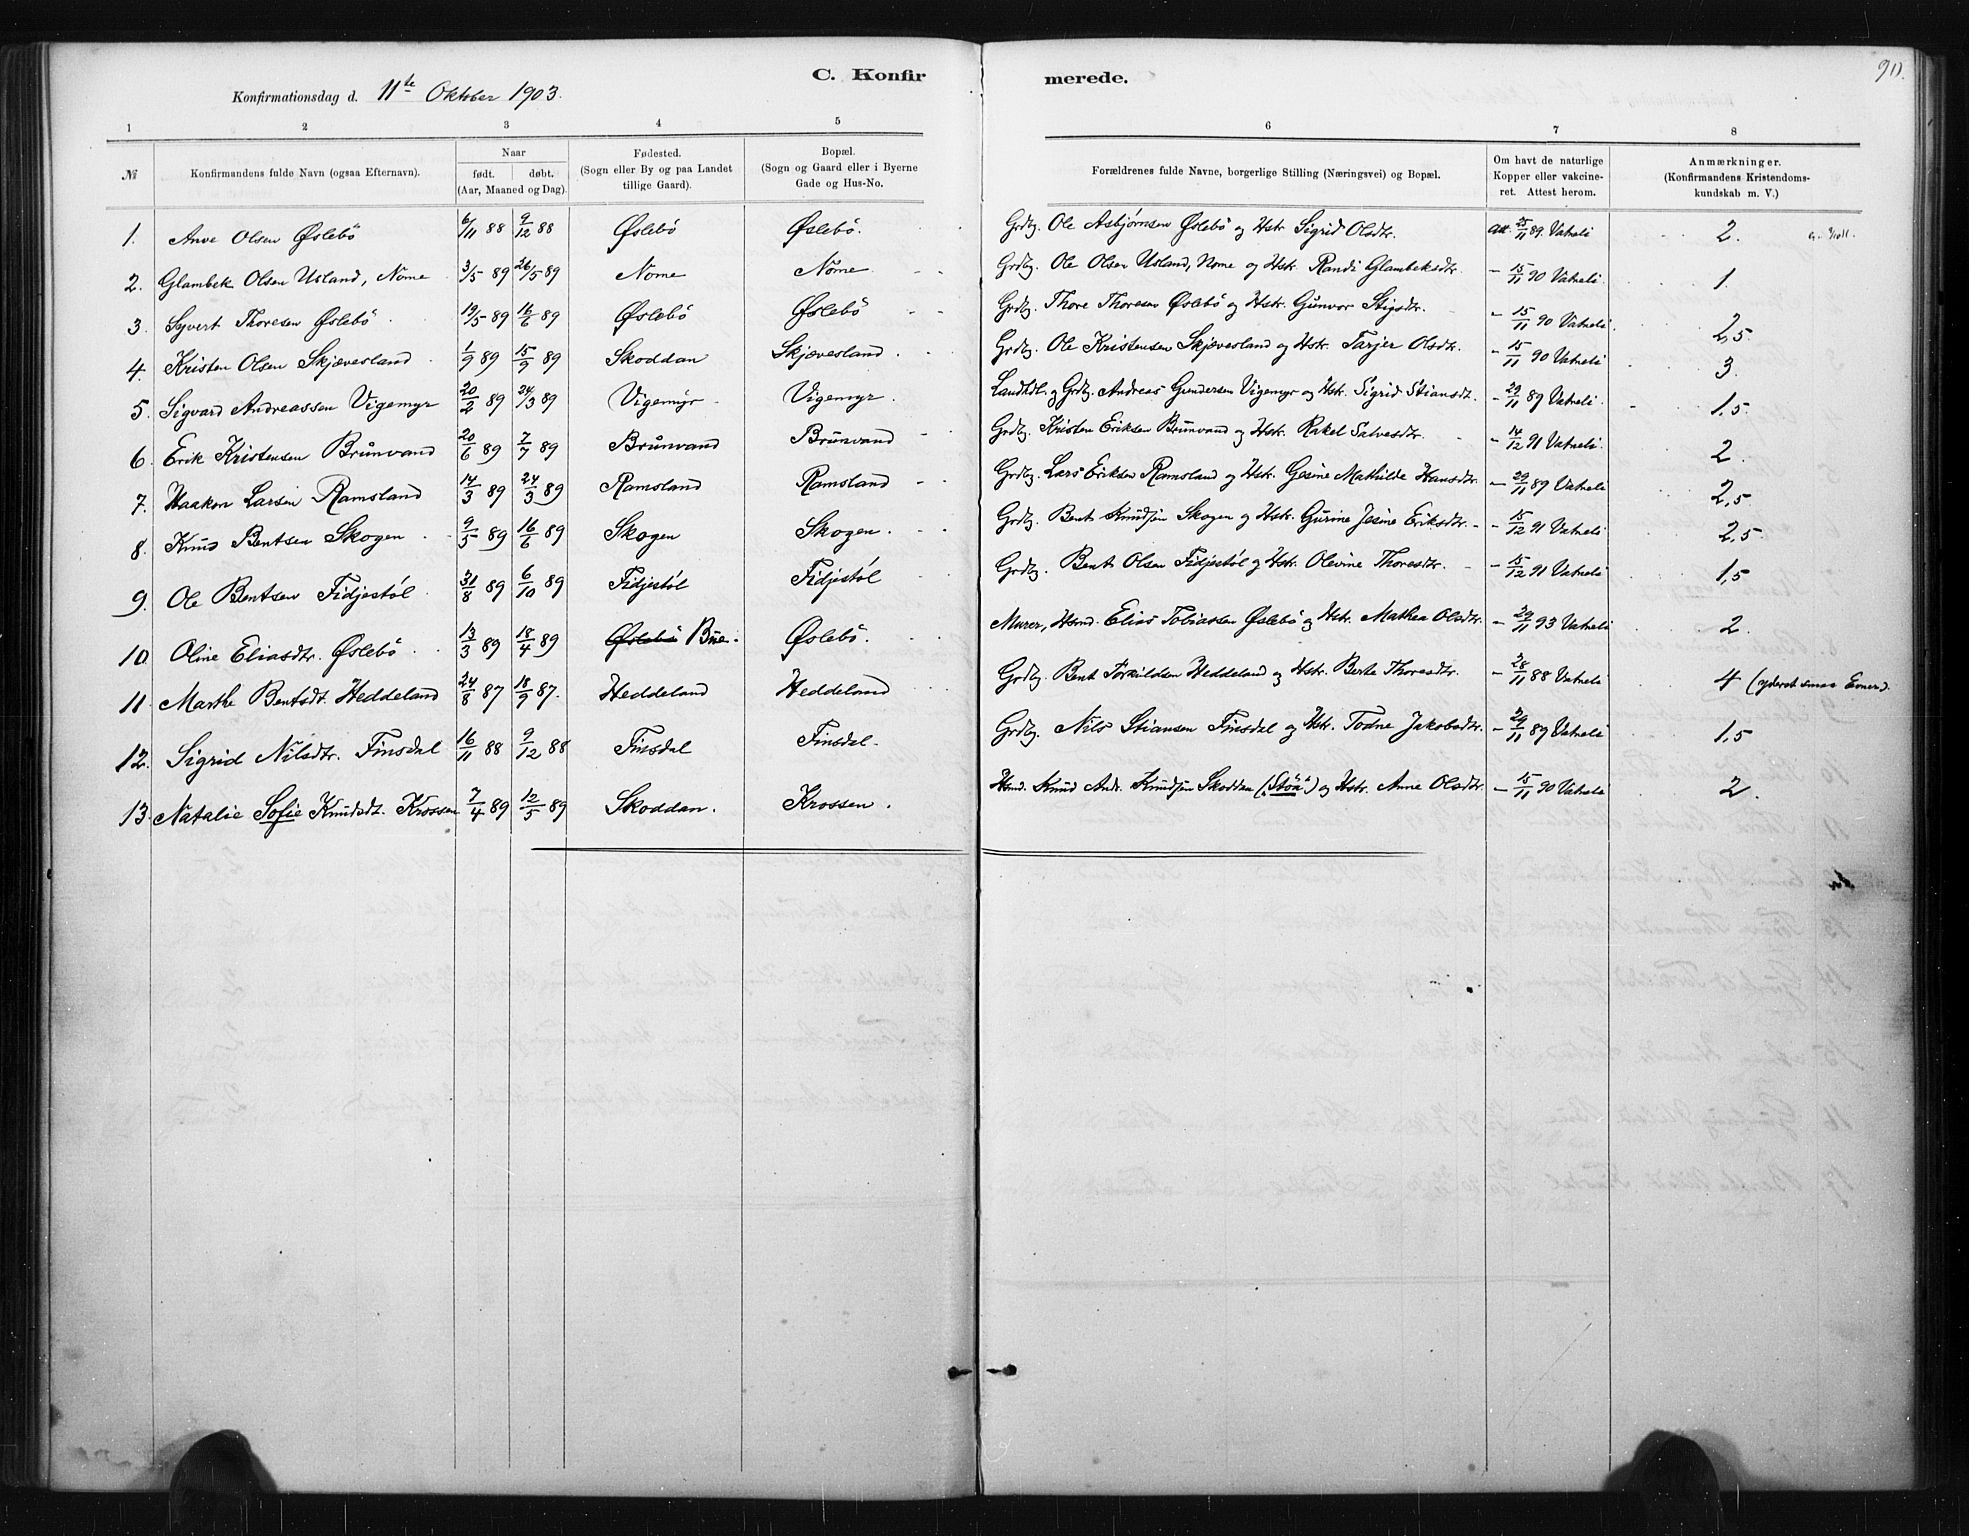 C. Konfirmerede.
90.
Konfirmationsdag d. 11te Oktober 1903.
1 2 3 4 5 6 7 8
№ Konfirmandens fulde Navn (ogsaa Efternavn). Naar født. døbt. (Aar, Maaned og Dag). Fødested. (Sogn eller By og paa Landet tillige Gaard). Bopæl. (Sogn og Gaard eller i Byerne Gade og Hus-No. Forældrenes fulde Navne, borgerlige Stilling (Næringsvei) og Bopæl. Om havt de naturlige Kopper eller vakcineret. Attest herom. Anmærkninger. (Konfirmandens Kristendomskundskab m. V.)
1. Anve Olsen Øslebö 6/11 88 9/12 88 Øslebö Øslebö. Grdbg. Ole Asbjørnsen Øslebö og Hstr. Sigrid Olsdtr. att. 25/11 89. Vatneli 2.
2. Glambek Olsen Usland, Nöme 3/5 89 26/5 89 Nöme Nöme Grdbg. Ole Olsen Usland, Nome og Hstr. Randi Glambeksdtr. - 15/11 90 Vatneli 1
3. Syvert Thoresen Øslebö 19/5 89 16/6 89 Øslebö Øslebö Grdbg. Thore Thoresen Øslebö og Hstr. Gunvor Stigsdtr. - 15/11 90 Vatneli. 2,5
4. Kristen Olsen Skjævesland 1/9 89 15/9 89 Skoddan Skjævesland. Grdbg. Ole Kristensen Skjævesland og Hstr. Tarjer Olsdtr. - 15/11 90 Vatneli 3.
5. Sigvard Andreassen Vigemyr 20/2 89 24/3 89 Vigemyr Vigemyr. Landhdl. og Grdbg. Andreas Gundersen Vigemyr og Hstr. Sigrid Stiansdt. - 29/11 89 Vatneli. 1,5.
6. Erik Kristensen Brünvand 20/6 89 7/7 89 Brünvand Brünvand Grdbg. Kristen Eriksen Brünvand og Hstr. Rakel Salvesdtr. - 14/12 91 Vatneli 2.
7. Haakon Larsen Ramsland 14/3 89 24/3 89 Ramsland Ramsland Grdbg. Lars Eriksen Ramsland og Hstr. Gesine Mathilde Hansdtr. - 29/11 89 Vatneli 2,5
8. Knud Bentsen Skogen 9/5 89 16/6 89 Skogen Skogen. Grdbg. Bent Knudsen Skogen og Hstr. Gurine Jesine Eriksdtr. - 15/12 91 Vatneli 2,5
9. Ole Bentsen Fidjestöl 31/8 89 6/10 89 Fidjestöl Fidjestöl Grdbg. Bent Olsen Fidjestöl og Hstr. Olevine Thoresdtr. - 15/12 91 Vatneli 1,5
10. Oline Eliasdtr. Øslebö 13/3 89 18/4 89 Øslebö Büe. Øslebö. Murer, Hsmd. Elias Tobiassen Øslebö og Hstr. Mathea Olsdtr. - 29/11 93 Vatneli 2.
11. Marthe Bentsdt. Heddeland 24/8 87 18/9 87. Heddeland Heddeland Grdbg. Bent Torkildsen Heddeland og Hstr. Berte Thoresdtr. - 28/11 88 Vatneli 4 (yderst smaa Evner).
12. Sigrid Nilsdtr. Finsdal 16/11 88 9/12 88 Finsdal Finsdal. Grdbg. Nils Stiansen Finsdal og Hstr. Todne Jakobsdtr. - 29/11 89 Vatneli 1,5
13. Natalie Sofie Knudsdt. Krossen 7/4 89 12/5 89 Skoddan. Krossen. Hsmd. Knud Andr. Knudsen Skoddan ("Stöa") og Hstr. Anne Olsdtr. - 15/11 90 Vatneli 2.